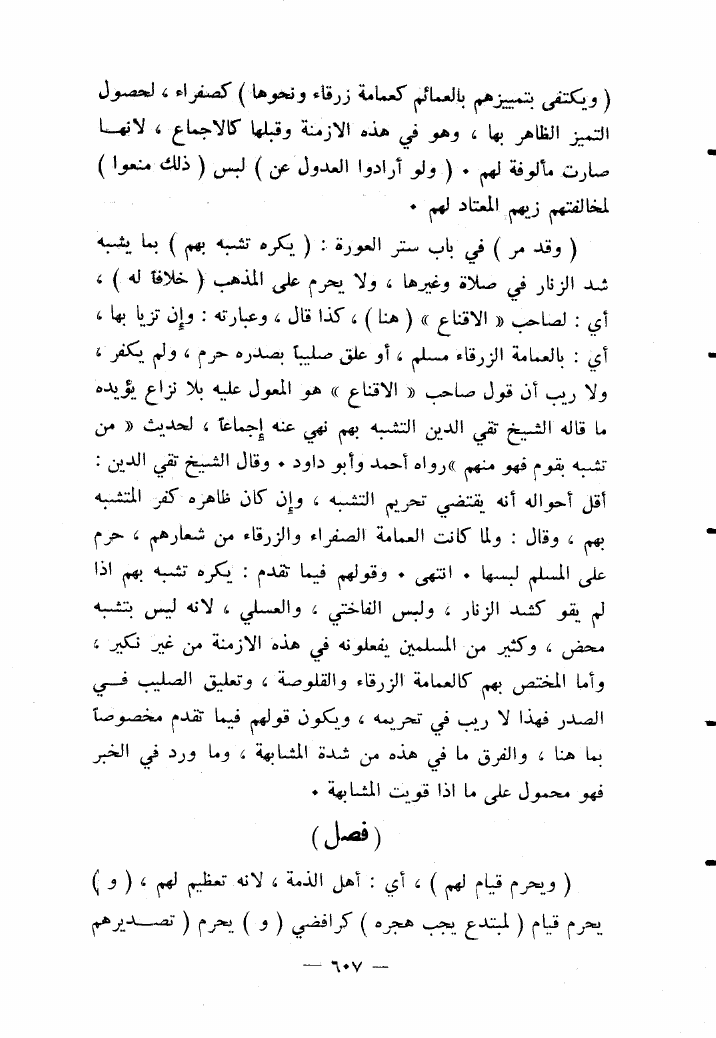 ( ويكتفى بتمييزهم بالعمائم كعمامة زرقاء ونحوها ) كصفراء ، لحصول
التميز الظاهر بها ، وهو في هذه الازمنة وقبلها كالاجماع ، لانهـا
صارت مألوفة لهم ٠ ( ولو أرادوا العدول عن ) لبس ( ذلك منعوا )
لمخالفتهم زيهم المعتاد لهم ٠
( وقد مر ) في باب ستر العورة : ( يكره تشبه بهم ) بما يشبه
شد الزنار في صلاة وغيرها ، ولا يحرم على المذهب ( خلافاً له ) ،
أي : لصاحب « الاقناع » ( هنا ) ، كذا قال ، وعبارته : وإن تزيا بها ،
أي : بالعمامة الزرقاء مسلم ، أو علق صليباً بصدره حرم ، ولم يكفر ،
ولا ريب أن قول صاحب « الاقناع » هو المعول عليه بلا نزاع يؤيده
ما قاله الشيخ تقي الدين التشبه بهم نهي عنه إجماعاً ، لحديث « من
تشبه بقوم فهو منهم »رواه أحمد وأبو داود ٠ وقال الشيخ تقي الدين :
أقل أحواله أنه يقتضي تحريم التشبه ، وإن كان ظاهره كفر المتشبه
بهم ، وقال : ولما كانت العمامة الصفراء والزرقاء من شعارهم ، حرم
على المسلم لبسها ٠ انتهى ٠ وقولهم فيما تقدم : يكره تشبه بهم اذا
لم يقو كشد الزنار ، ولبس الفاختي ، والعسلي ، لانه ليس بتشبه
محض ، وكثير من المسلمين يفعلونه في هذه الازمنة من غير نكير ،
وأما المختص بهم كالعمامة الزرقاء والقلوصة ، وتعليق الصليب فـــي
الصدر فهذا لا ريب في تحريمه ، ويكون قولهم فيما تقدم مخصوصاً
بما هنا ، والفرق ما في هذه من شدة المشابهة ، وما ورد في الخبر
فهو محمول على ما اذا قويت المشابهة ٠
( فصل )
( ويحرم قيام لهم ) ، أي : أهل الذمة ، لانه تعظيم لهم ، ( و )
يحرم قيام ( لمبتدع يجب هجره ) كرافضي ( و ) يحرم ( تصـــديرهم
— ٦٠٧ —